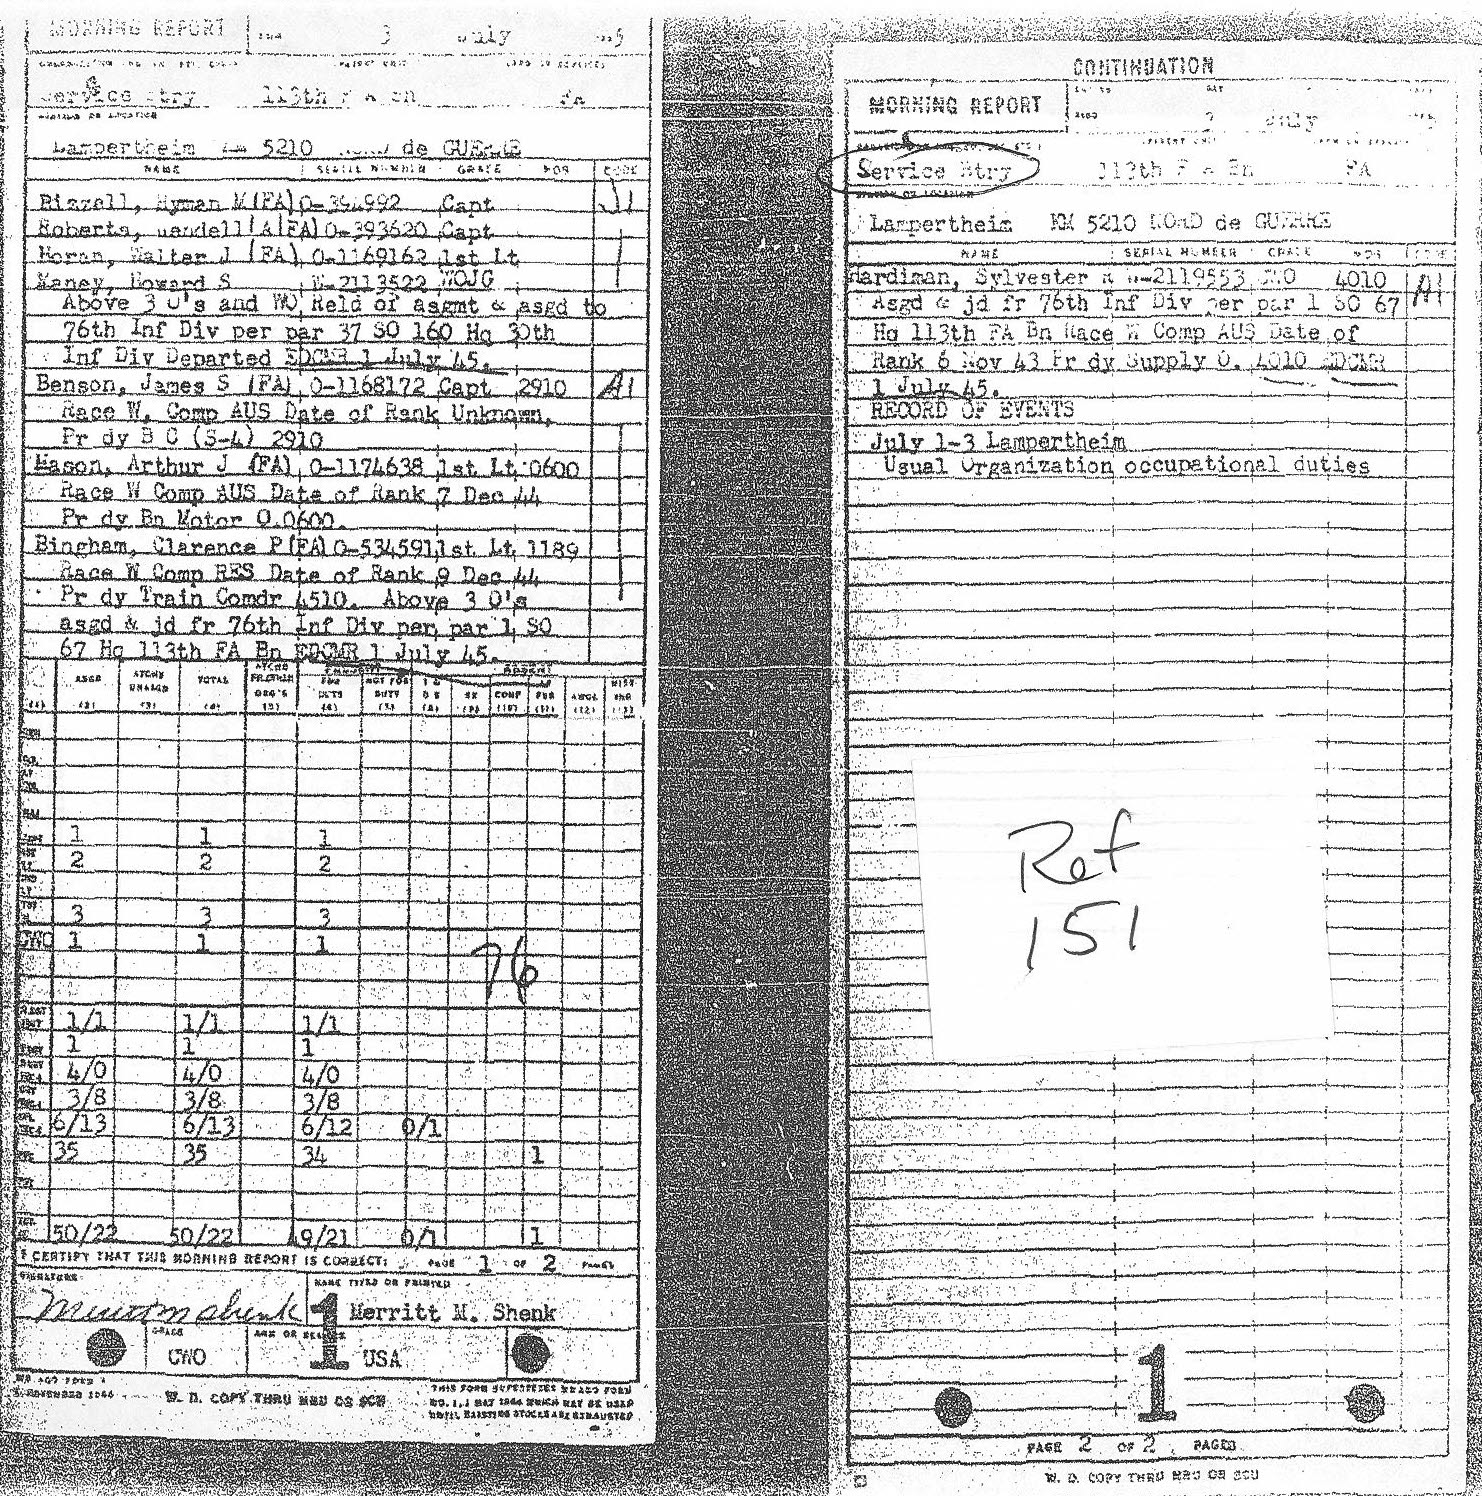 MORNING REPORT 3 July
Service Btry 113th F A Bn FA
Lampertheim 5210 NORD de GUERRE
NAME SERIAL NUMBER GRADE MOS CODE
Bizzell, Hyman M (FA) O-394992 Capt J1
Roberts, Wendell A (FA) O-393620 Capt
Horan, Walter J (FA) O-1169162 1st Lt
Maney, Howard S W-2113522 WOJG
Above 3 O's and WO Reld of asgmt & asgd to
76th Inf Div per par 37 SO 160 Hq 30th
Inf Div Departed EDCMR 1 July 45.
Benson, James S (FA) O-1168172 Capt 2910 A1
Race W, Comp AUS Date of Rank Unknown,
Pr dy B C (S-4) 2910
Mason, Arthur J (FA) O-1174638 1st Lt 0600
Race W Comp AUS Date of Rank 7 Dec 44
Pr dy Bn Motor O.0600.
Bingham, Clarence P (FA) O-534591 1st Lt 1189
Race W Comp RES Date of Rank 9 Dec 44
Pr dy Train Comdr 4510. Above 3 O's
asgd & jd fr 76th Inf Div per par 1 SO
67 Hq 113th FA Bn EDCMR 1 July 45.
ABSENT
ASGD ATCHD UNASGD TOTAL FOR DUTY NOT FOR DUTY SK CONF AWOL
1 1 1
2 2 2
3 3 3
CWO 1 1 1
76
1/1 1/1 1/1
1 1 1
4/0 4/0 4/0
3/8 3/8 3/8
6/13 6/13 6/12 0/1
35 35 34 1
50/22 50/22 9/21 0/1 1
I CERTIFY THAT THIS MORNING REPORT IS CORRECT: PAGE 1 OF 2 PAGES
SIGNATURE NAME TYPED OR PRINTED
Merritt M Shenk 1 Merritt M. Shenk
GRADE ARM OR SERVICE
CWO USA
W. D. COPY THRU MRU OR SCU
THIS FORM SUPERSEDES WD AGO FORM
NO. 1, 1 MAY 1944 WHICH MAY BE USED
UNTIL EXISTING STOCKS ARE EXHAUSTED
CONTINUATION
MORNING REPORT 3 July
Service Btry 113th F A Bn FA
Lampertheim WM 5210 NORD de GUERRE
NAME SERIAL NUMBER GRADE MOS CODE
Hardiman, Sylvester R W-2119553 CWO 4010 A1
Asgd & jd fr 76th Inf Div per par 1 SO 67
Hq 113th FA Bn Race W Comp AUS Date of
Rank 6 Nov 43 Pr dy Supply O. 4010 EDCMR
1 July 45.
RECORD OF EVENTS
July 1-3 Lampertheim
Usual Organization occupational duties
Ref
151
1
PAGE 2 OF 2 PAGES
W. D. COPY THRU MRU OR SCU